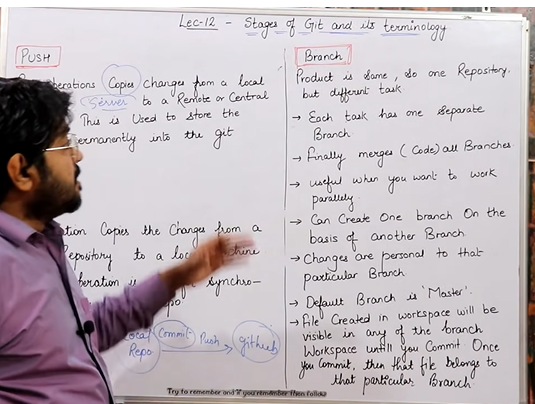 Lec-12 - Stages of Git and its terminology
PUSH
Copies changes from a local
Server to a Remote or Central
This is Used to store the
permanently into the git
Copies the Changes from a
Repository to a local
is
Local Commit Push Github
Repo
Branch
Product is same, so one Repository.
but different task.
→ Each task has one separate
Branch
→ Finally merges (Code) all Branches.
→ useful when you want to work
parallely.
→ Can Create One branch On the
basis of another Branch
→ Changes are personal to that
particular Branch
→ Default Branch is 'Master'.
→ File Created in workspace will be
visible in any of the branch
Workspace untill you Commit. Once
you Commit, then that file belongs to
that particular Branch
Try to remember and if you remember then follow